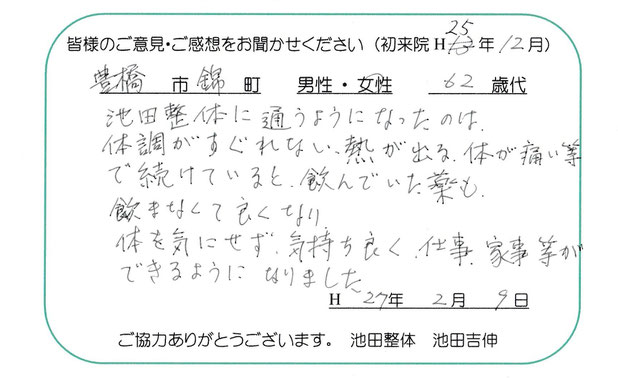 皆様のご意見・ご感想をお聞かせください（初来院 H25年12月）
豊橋 市 錦 町 男性・女性 62 歳代
池田整体に通うようになったのは、
体調がすぐれない、熱が出る、体が痛い等
で続けていると、飲んでいた薬も、
飲まなくて良くなり
体を気にせず、気持ち良く、仕事、家事等が
できるようになりました
H 27年 2月 9日
ご協力ありがとうございます。 池田整体 池田吉伸